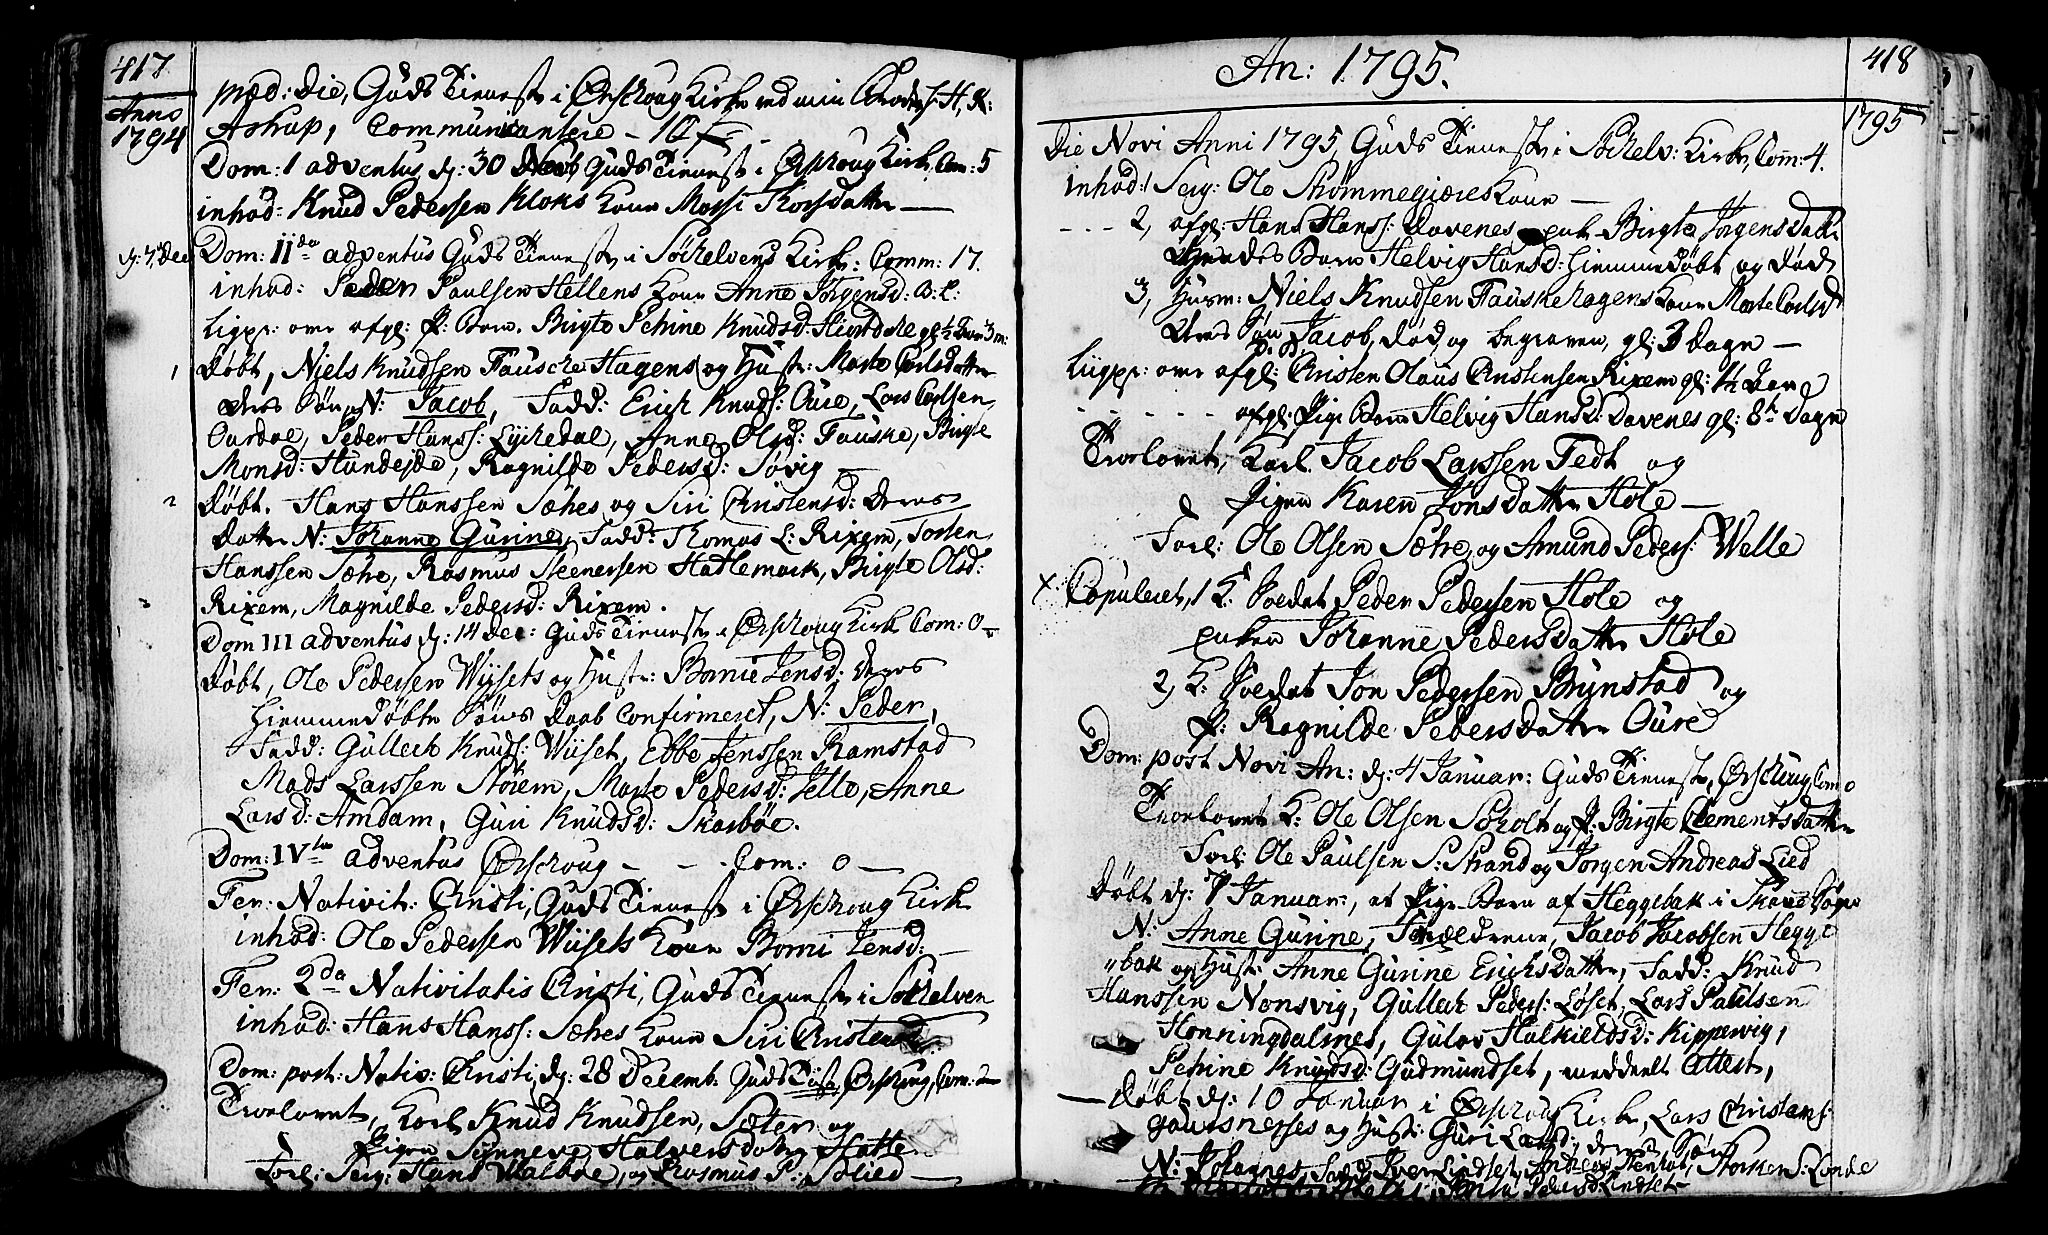 417.
Anno
1794
præd: die, Guds Tieneste i Ørschoug Kirke ved min Broder H, K:
Astrup, Communicantere - 10
Dom: 1 adventus d: 30 Novb Guds Tienest i Ørschoug Kirk, Com: 5
inhod: Knud Pedersen Kloks Kone Massi Korsdatter —
d: 7, Dec Dom: IIda adventus Guds Tieneste i Søchelvens Kirk: Comm: 17.
inhod: Peder Paulsen Hellens Kone Anne Jørgensd:
Ligpr: over afgl: P: Barn. Birgte Petrine Knudsd:
1 døbt, Niels Knudsen Fausche Hagens og Hustr: Marte Carlsdatter
deres Søn, N: Jacob, Fadd: Erich Knuds: Oure, Lars Carlsen
Aardal, Peder Hanss: Lyckedal, Anne Olsd: Fauske, Birgte
Monsd: Hundejde, Ragnilde Pedersd: Søvig —
2 døbt. Hans Hanssen Sæhes og Siri Christensd: deres
datter N: Johanne Gurine, Fadd: Thomas L: Rixem, Torsten
Hanssen Sætre, Rasmus Steenersen Hatlemark, Birgte Olsd:
Rixem, Magnilde Pedersd: Rixem.
Dom III adventus d: 14 dec: Guds Tieneste i Ørschoug Kirk Com: 0 –
døbt, Ole Pedersen Wiisets og Hustr: Barnie Jensd: deres
hiemmedøbte Søns daab confirmeret, N: Peder,
Fadd: Gulleck Knuds: Wiiset, Ebbe Jenssen Ramstad
Mads Larssen Støiem, Marte Pedersd: Velle, Anne
Larsd: Amdam, Guri Knudsd: Skarbøe.
Dom: IVta adventus Ørschoug - - Com: 0 —
Fer: Nativit: Christi, Guds Tieneste i Ørschoug Kirk
inhod: Ole Pedersen Wiisets Kone Barni Jensd: —
Fer: 2da Nativitatis Christi, Guds Tieneste i Søchelven
inhod: Hans Hanss: Sæhes Kone Siri Christensd:
Dom: post: Nativ: Christi, d: 28 Decemb. Guds Tieste Ørschoug, Com:
Troelovet, Karl Knud Knudsen, Sæter og
Pigen Synneve Halvorsdatter Hatle
Forl: Serg: Hans Walbøe, og Rasmus P: Solied —
An: 1795.
418
1795
Die Novi Anni 1795, Guds Tieneste i Søchelv: Kirk, Com: 4.
inhod: Serg: Ole Strømmegiæres Kone —
- - - 2, afgl: Hans Hanss: Davenes enke Birgte Jørgensdatt:
Barn Helvig Hansd: hiemmedøbt og død
3, Husm: Niels Knudsen Fauske Hagens Kone Marte Carlsd:
deres Søn Jacob, død, og begraven, gl: 3 dage —
Liigpr: over afgl: Christen Olaus Christensen Rixem gl:
- - - - - - afgl: Pige Barn Helvig Hansd: Davenes gl: 8te Dage
Troelovet, Karl Jacob Larssen Tedt og
Pigen Karen Jonsdatter Hole —
Forl: Ole Olsen Sætre og Amund Peders: Welle
x Copuleret, 1 K: Soldat Peder Pedersen Hole og
enken Johanne Pedersdatter Hole
2, K: Soldat Jon Pedersen Brunstad og
P: Ragnilde Pedersdatter Oure
Dom: post Novi An: d: 4 Januar: Guds Tieneste, Ørschoug, Com 0
Troelovet K: Ole Olsen Søholt og P: Birgte Clementsdatter
Forl: Ole Paulsen S: Strand og Jørgen Andreas Lied
døbt d: 7 Januar, et Pige Barn af Heggebak i Skous Sogn
N: Anne Gurine, Forældrene, Jacob Jacobsen Hegge
"bak og Hustr: Anne Gurine Erichsdatter, Fadd: Knud
Hanssen Nonsvig, Gullak Peders: Løset, Lars Paulsen
Honningdalnes, Gulov Halkieldsd: Kippervig,
Petrine Knudsd: Gudmundset, meddeelt Attest,
— døbt d: 10 Januar i Ørschoug Kirk, Lars Christens:
Gausnesses og Hustr: Guri Larsd: deres Søn
N: Johannes, Fadd: Iver Lindset, Andreas Tenfiot, Thorsten S: Lande
Pedersd Lindset –